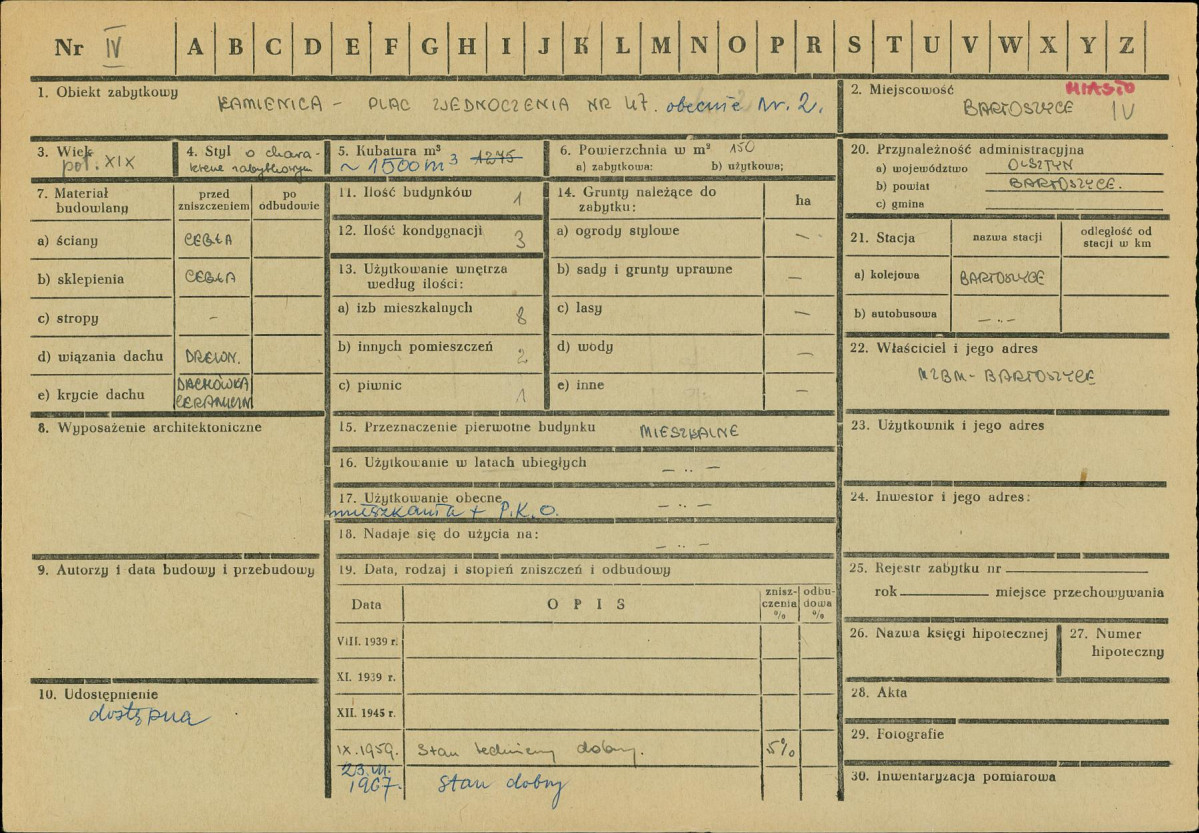 Nr IV A B C D E F G H I J K L M N O P R S T U V W X Y Z
1. Obiekt zabytkowy KAMIENICA – PLAC ZJEDNOCZENIA NR 47. obecnie Nr. 2.
2. Miejscowość MIASTO
BARTOSZYCE IV
3. Wiek
poł. XIX
4. Styl o chara-
kterze zabytkowym
5. Kubatura m³
~ 1500 m³ 1275
6. Powierzchnia w m² 150
a) zabytkowa: b) użytkowa;
20. Przynależność administracyjna
a) województwo OLSZTYN
b) powiat BARTOSZYCE.
c) gmina
7. Materiał budowlany
przed zniszczeniem
po odbudowie
a) ściany CEGŁA
b) sklepienia CEGŁA
c) stropy –
d) wiązania dachu DREWN.
e) krycie dachu DACHÓWKA
CERAMICZN
11. Ilość budynków 1
12. Ilość kondygnacji 3
13. Użytkowanie wnętrza
według ilości:
a) izb mieszkalnych 8
b) innych pomieszczeń 2
c) piwnic 1
14. Grunty należące do
zabytku: ha
a) ogrody stylowe –
b) sady i grunty uprawne –
c) lasy –
d) wody –
e) inne –
21. Stacja nazwa stacji odległość od
stacji w km
a) kolejowa BARTOSZYCE
b) autobusowa – „ –
22. Właściciel i jego adres
MZBM - BARTOSZYCE
8. Wyposażenie architektoniczne
15. Przeznaczenie pierwotne budynku MIESZKALNE
16. Użytkowanie w latach ubiegłych – „ –
17. Użytkowanie obecne – „ –
mieszkania + P.K.O.
18. Nadaje się do użycia na: – „ –
23. Użytkownik i jego adres
24. Inwestor i jego adres:
9. Autorzy i data budowy i przebudowy
19. Data, rodzaj i stopień zniszczeń i odbudowy
Data OPIS znisz-
czenia
% odbu-
dowa
%
VIII. 1939 r.
XI. 1939 r.
XII. 1945 r.
IX. 1959. Stan techniczny dobry. 5%
23.III.
1967. Stan dobry
25. Rejestr zabytku nr
rok miejsce przechowywania
26. Nazwa księgi hipotecznej
27. Numer
hipoteczny
10. Udostępnienie
dostępna
28. Akta
29. Fotografie
30. Inwentaryzacja pomiarowa